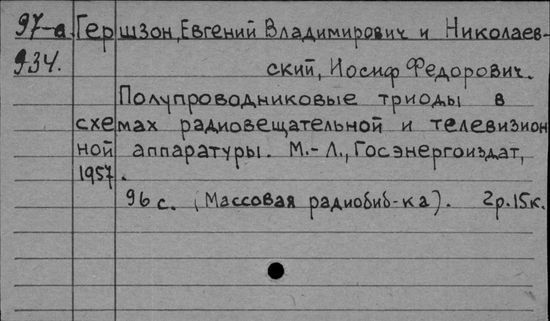 97-а Гершзон, Евгений Владимирович и Николаев-
934. ский, Иосиф Федорович.
Полупроводниковые триоды в
схемах радиовещательной и телевизион
ной аппаратуры. М.-Л., Госэнергоиздат,
1957.
96 с. (Массовая радиобиб-ка). 2р.15к.